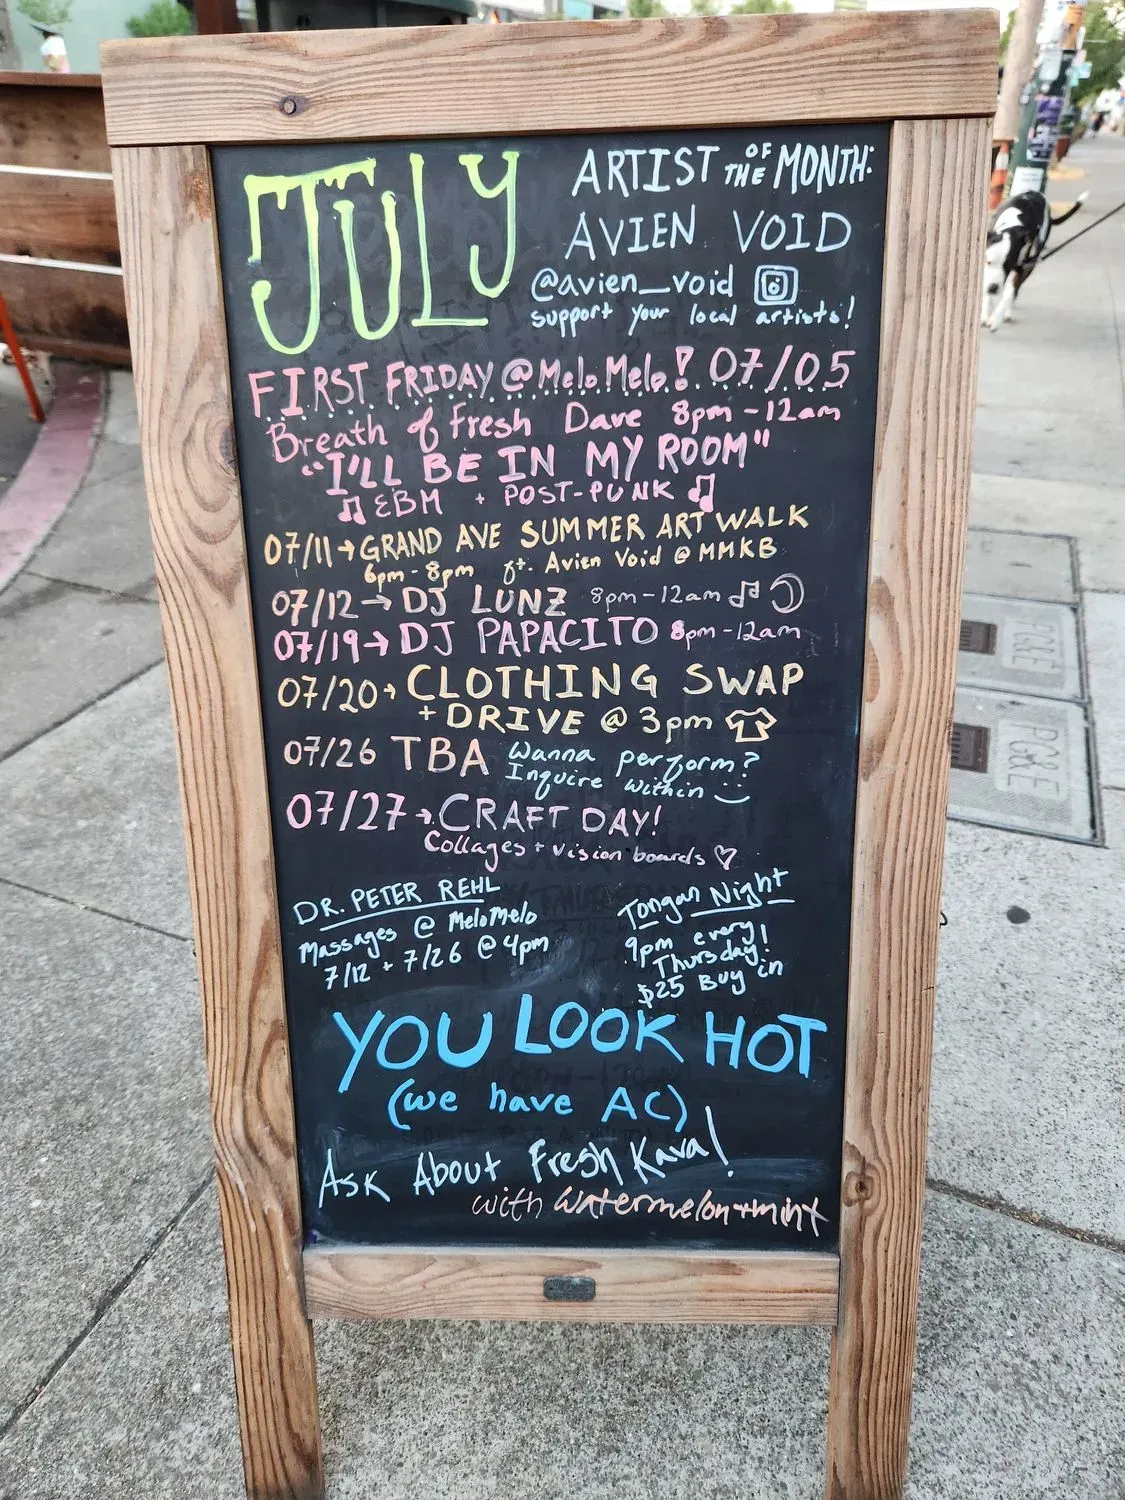 JULY
ARTIST OF THE MONTH:
AVIEN VOID
@avien_void
support your local artists!
FIRST FRIDAY @ Melo Melo! 07/05
Breath of Fresh Dave 8pm-12am
"I'LL BE IN MY ROOM"
EBM + POST-PUNK
07/11→GRAND AVE SUMMER ART WALK
6pm-8pm ft. Avien Void @ MMKB
07/12→DJ LUNZ 8pm-12am
07/19→DJ PAPACITO 8pm-12am
07/20→CLOTHING SWAP
+DRIVE @ 3pm
07/26 TBA Wanna perform?
Inquire within
07/27→CRAFT DAY!
Collages + vision boards ♡
DR. PETER REHL
Massages @ MeloMelo
7/12 + 7/26 @ 4pm
Tongan Night
9pm every
Thursday!
$25 Buy in
YOU LOOK HOT
(we have AC)
Ask About Fresh Kava!
with watermelon+mint
PG&E
PG&E